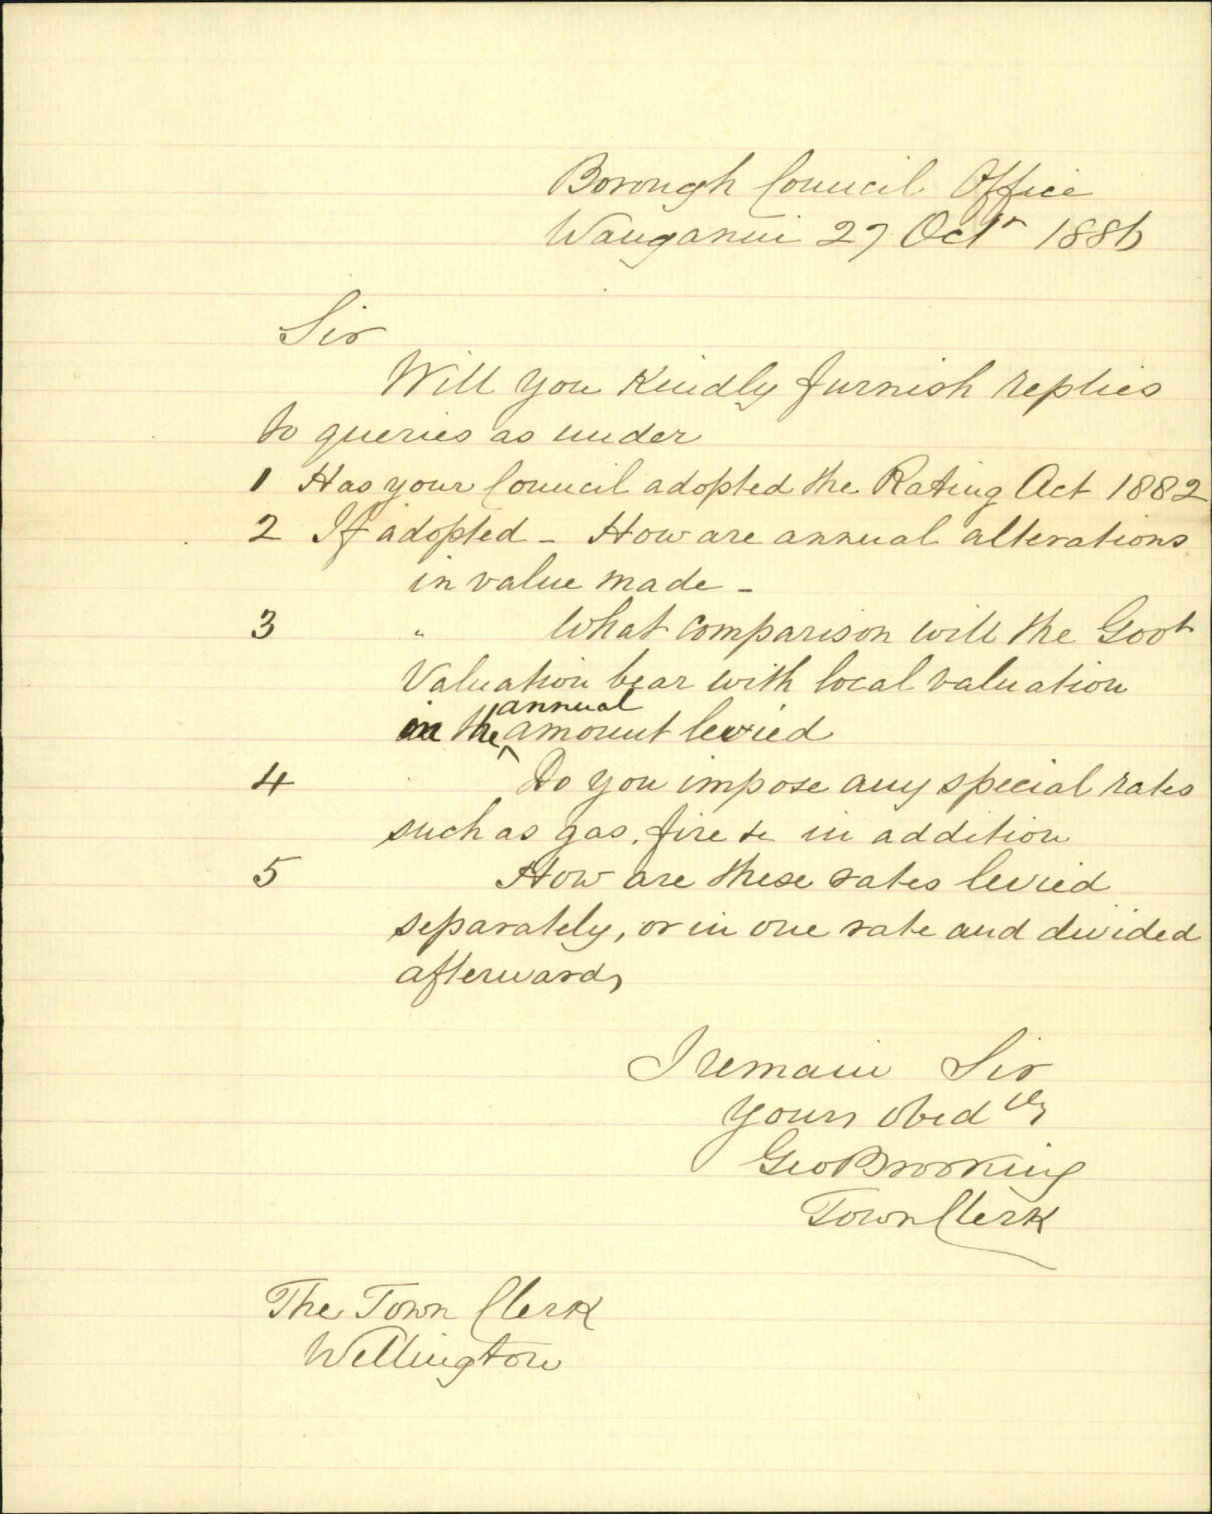 Borough Council Office
Wanganui 27 Octr 1886
Sir
Will you kindly furnish replies
to queries as under
1 Has your Council adopted the Rating Act 1882
2 If adopted - How are annual alterations
in value made -
3 " What comparison will the Govt
Valuation bear with local valuation
in the annual amount levied
4 Do you impose any special rates
such as gas, fire &c in addition
5 How are these rates levied
separately, or in one rate and divided
afterwards
I remain Sir
Yours obedtly
Geo Brooking
Town Clerk
The Town Clerk
Wellington